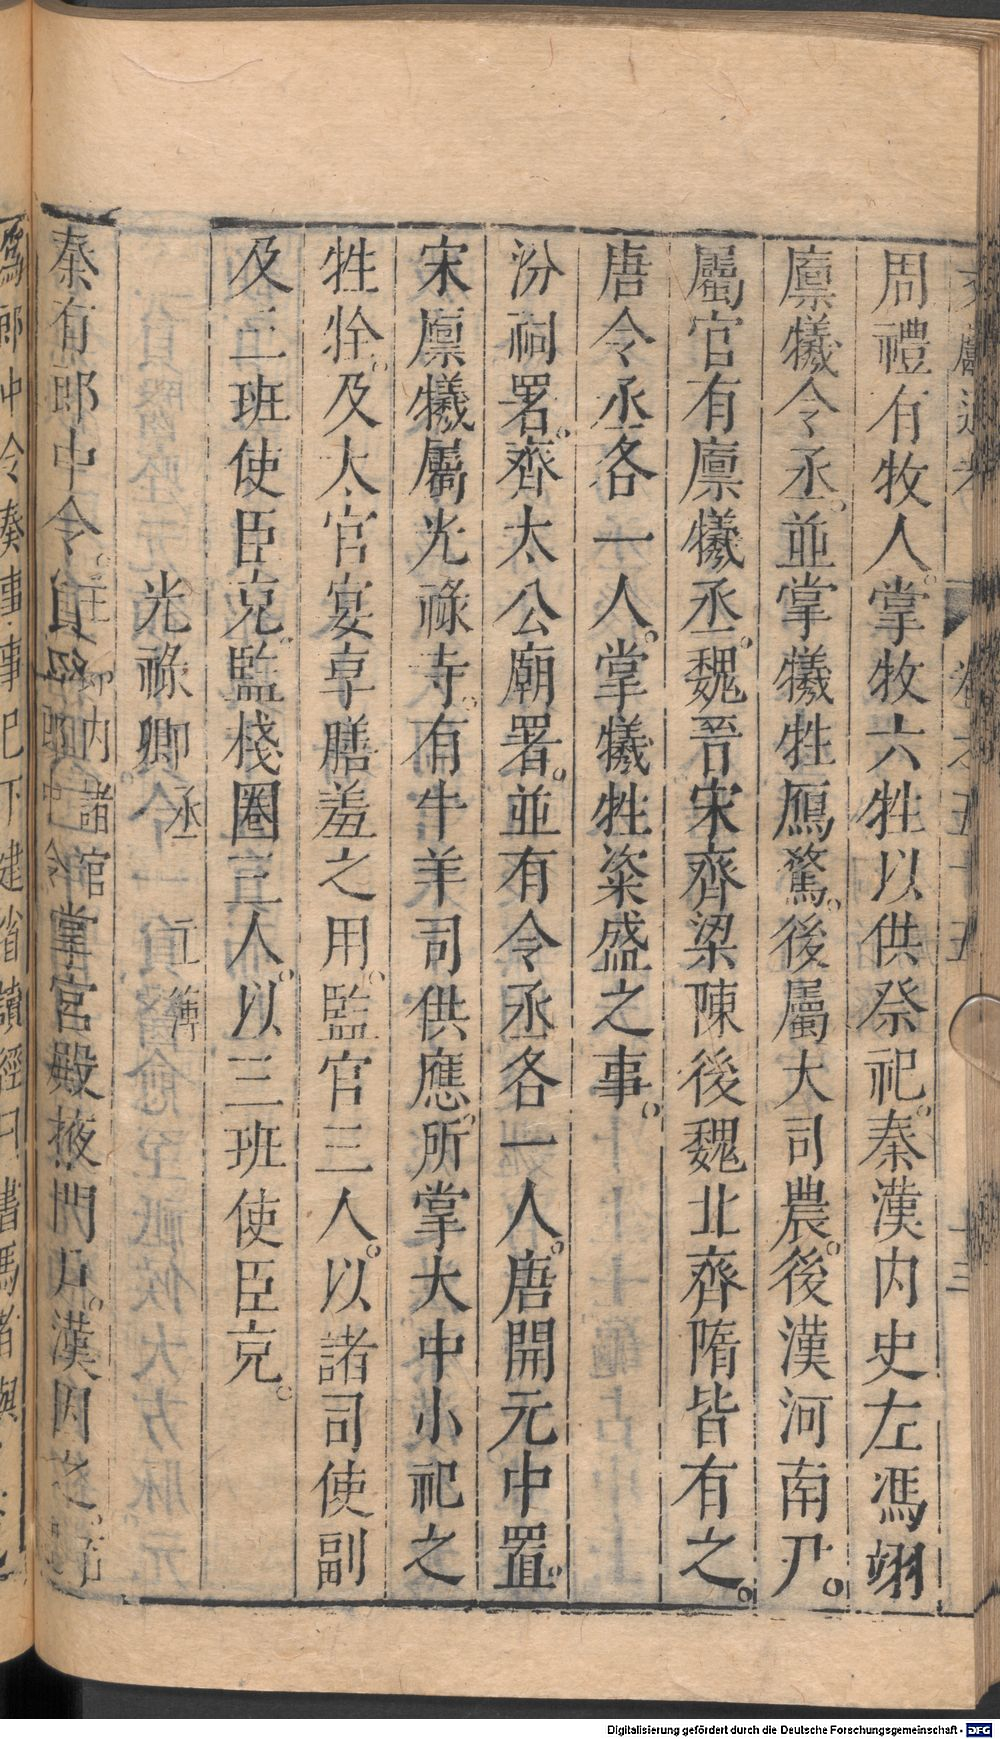 文獻通考 卷之五十五 十三
周禮有牧人。掌牧六牲以供祭祀。秦漢內史左馮翊
廪犧令丞。並掌犧牲鴈鶩。後屬大司農。後漢河南尹。
屬官有廪犧丞。魏晉宋齊梁陳後魏北齊隋皆有之。
唐令丞各一人。掌犧牲粢盛之事。
汾祠署。齊太公廟署。並有令丞各一人。唐開元中置。
宋廪犧屬光祿寺。有牛羊司供應。所掌大中小祀之
牲牷。及太官宴享膳羞之用。監官三人。以諸司使副
及三班使臣充。監棧圈三人。以三班使臣充。
光祿卿 丞 主簿
秦有郎中令。主郎內諸官 掌宮殿掖門戶。漢因之。
郎中令奏事事已下建省讀經曰書馬者與
Digitalisierung gefördert durch die Deutsche Forschungsgemeinschaft - DFG